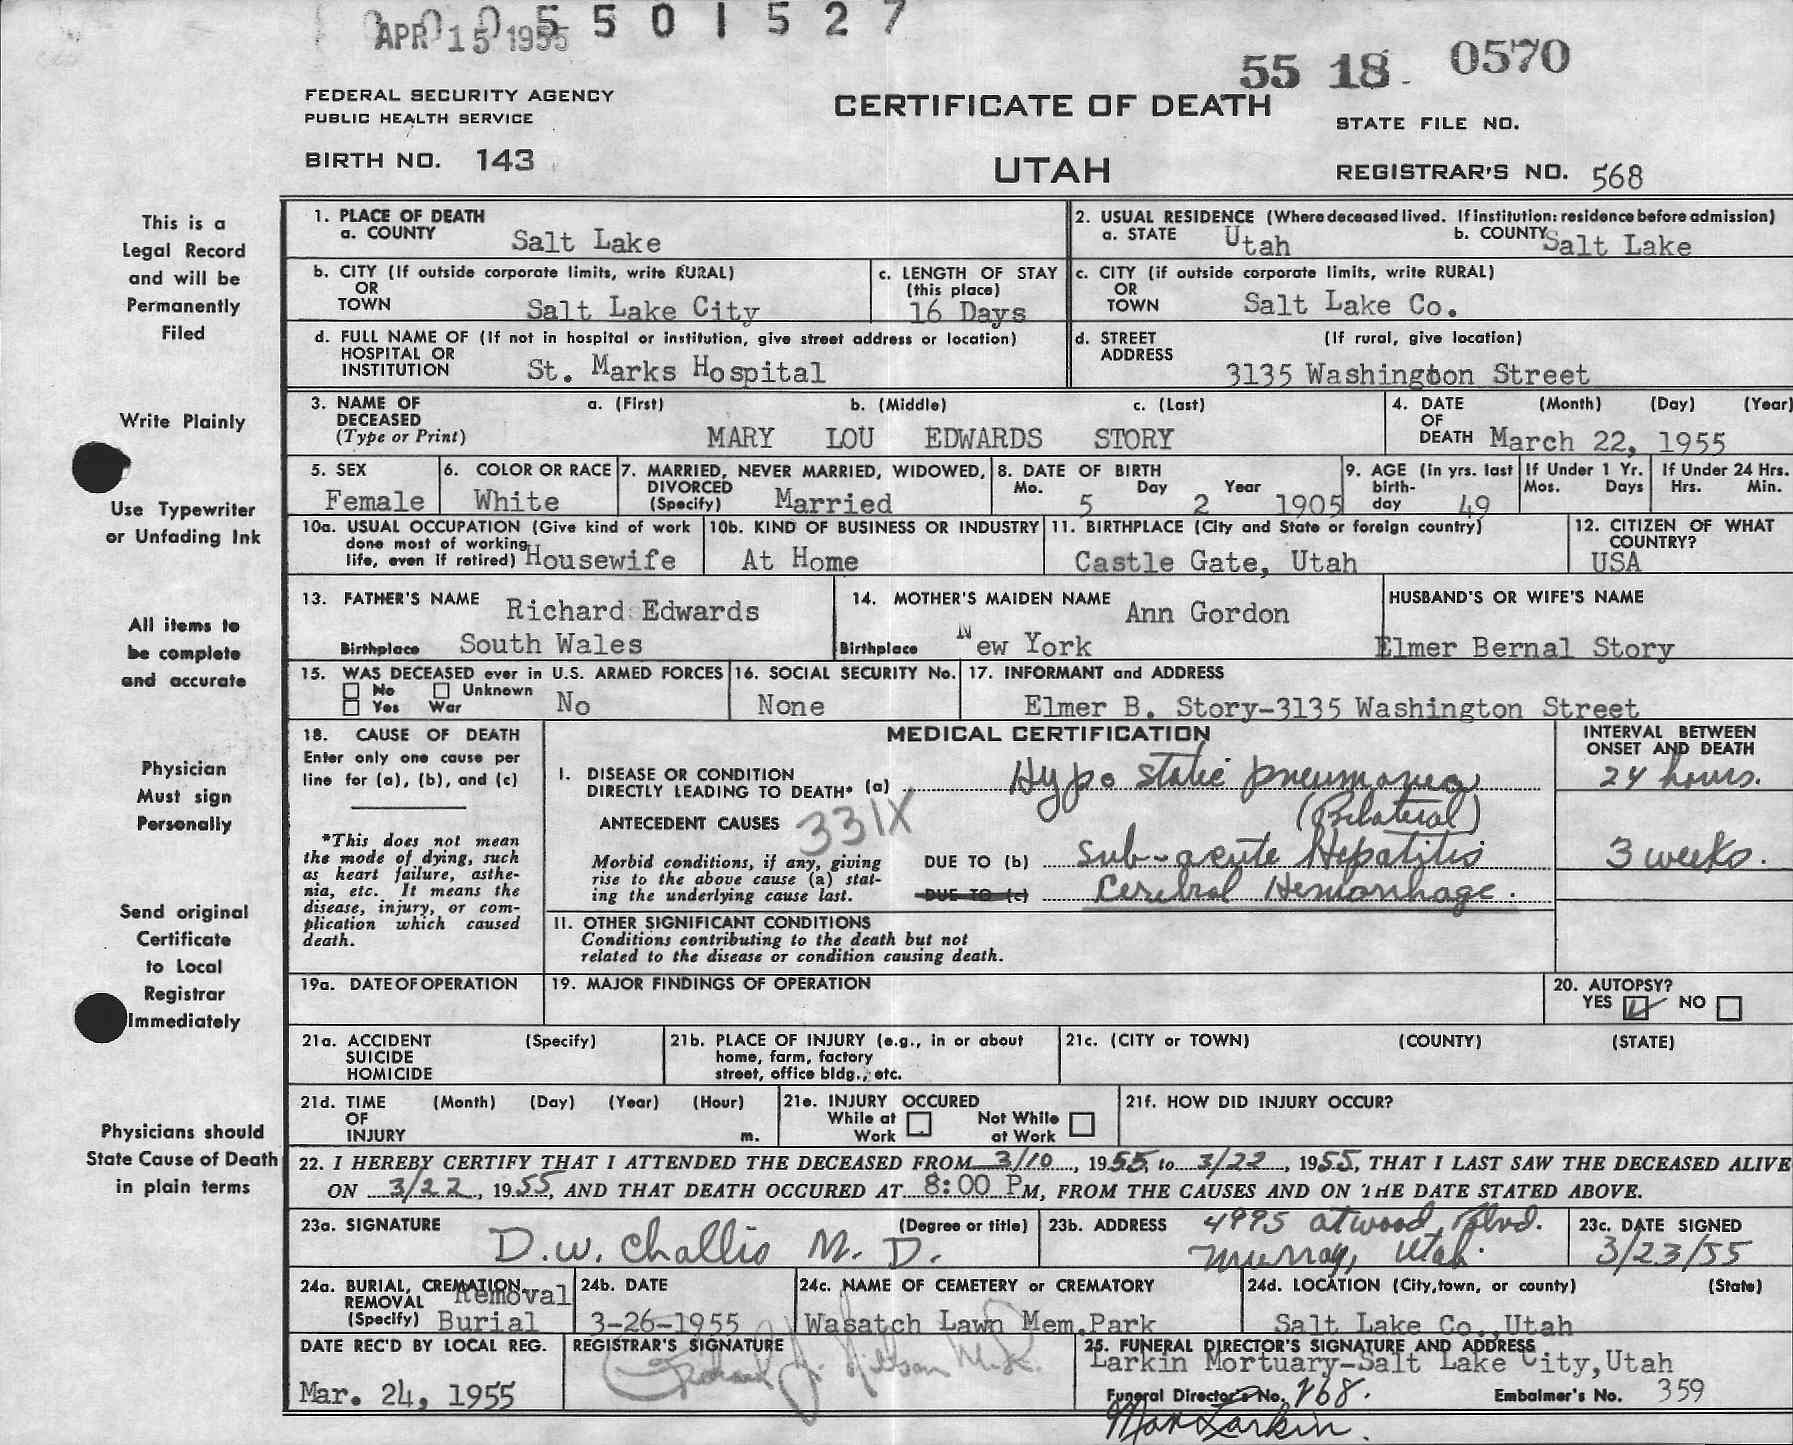 APR 15 1955
0 0 0 5 5 0 1 5 2 7
55 18 0570
FEDERAL SECURITY AGENCY
PUBLIC HEALTH SERVICE
CERTIFICATE OF DEATH
STATE FILE NO.
BIRTH NO. 143
UTAH
REGISTRAR'S NO. 568
This is a
Legal Record
and will be
Permanently
Filed
Write Plainly
Use Typewriter
or Unfading Ink
All items to
be complete
and accurate
Physician
Must sign
Personally
Send original
Certificate
to Local
Registrar
Immediately
Physicians should
State Cause of Death
in plain terms
1. PLACE OF DEATH
a. COUNTY Salt Lake
2. USUAL RESIDENCE (Where deceased lived. If institution: residence before admission)
a. STATE Utah b. COUNTY Salt Lake
b. CITY (If outside corporate limits, write RURAL)
OR
TOWN Salt Lake City
c. LENGTH OF STAY
(this place)
16 Days
c. CITY (if outside corporate limits, write RURAL)
OR
TOWN Salt Lake Co.
d. FULL NAME OF (If not in hospital or institution, give street address or location)
HOSPITAL OR
INSTITUTION St. Marks Hospital
d. STREET (If rural, give location)
ADDRESS
3135 Washington Street
3. NAME OF a. (First) b. (Middle) c. (Last)
DECEASED
(Type or Print) MARY LOU EDWARDS STORY
4. DATE (Month) (Day) (Year)
OF
DEATH March 22, 1955
5. SEX
Female
6. COLOR OR RACE
White
7. MARRIED, NEVER MARRIED, WIDOWED,
DIVORCED
(Specify) Married
8. DATE OF BIRTH
Mo. 5 Day 2 Year 1905
9. AGE (in yrs. last
birth-
day 49
If Under 1 Yr.
Mos. Days
If Under 24 Hrs.
Hrs. Min.
10a. USUAL OCCUPATION (Give kind of work
done most of working
life, even if retired) Housewife
10b. KIND OF BUSINESS OR INDUSTRY
At Home
11. BIRTHPLACE (City and State or foreign country)
Castle Gate, Utah
12. CITIZEN OF WHAT
COUNTRY?
USA
13. FATHER'S NAME Richard Edwards
Birthplace South Wales
14. MOTHER'S MAIDEN NAME Ann Gordon
Birthplace New York
HUSBAND'S OR WIFE'S NAME
Elmer Bernal Story
15. WAS DECEASED ever in U.S. ARMED FORCES
No Unknown
Yes War No
16. SOCIAL SECURITY No.
None
17. INFORMANT and ADDRESS
Elmer B. Story-3135 Washington Street
18. CAUSE OF DEATH
Enter only one cause per
line for (a), (b), and (c)
*This does not mean
the mode of dying, such
as heart failure, asthe-
nia, etc. It means the
disease, injury, or com-
plication which caused
death.
MEDICAL CERTIFICATION
INTERVAL BETWEEN
ONSET AND DEATH
I. DISEASE OR CONDITION
DIRECTLY LEADING TO DEATH* (a) Hypo static pneumonea 24 hours.
(Bilateral)
ANTECEDENT CAUSES 331X
Morbid conditions, if any, giving
rise to the above cause (a) stat-
ing the underlying cause last.
DUE TO (b) Sub-acute Hepatitis 3 weeks.
DUE TO (c) Cerebral Hemorrhage.
II. OTHER SIGNIFICANT CONDITIONS
Conditions contributing to the death but not
related to the disease or condition causing death.
19a. DATE OF OPERATION
19. MAJOR FINDINGS OF OPERATION
20. AUTOPSY?
YES NO
21a. ACCIDENT (Specify)
SUICIDE
HOMICIDE
21b. PLACE OF INJURY (e.g., in or about
home, farm, factory
street, office bldg., etc.
21c. (CITY or TOWN) (COUNTY) (STATE)
21d. TIME (Month) (Day) (Year) (Hour)
OF
INJURY m.
21e. INJURY OCCURED
While at Not While
Work at Work
21f. HOW DID INJURY OCCUR?
22. I HEREBY CERTIFY THAT I ATTENDED THE DECEASED FROM 3/10, 1955, to 3/22, 1955, THAT I LAST SAW THE DECEASED ALIVE
ON 3/22, 1955, AND THAT DEATH OCCURED AT 8:00 PM, FROM THE CAUSES AND ON THE DATE STATED ABOVE.
23a. SIGNATURE (Degree or title)
D.W. Challis M. D.
23b. ADDRESS 4995 Atwood Blvd.
Murray, Utah.
23c. DATE SIGNED
3/23/55
24a. BURIAL, CREMATION,
REMOVAL Removal
(Specify) Burial
24b. DATE
3-26-1955
24c. NAME OF CEMETERY or CREMATORY
Wasatch Lawn Mem.Park
24d. LOCATION (City, town, or county) (State)
Salt Lake Co., Utah
DATE REC'D BY LOCAL REG.
Mar. 24, 1955
REGISTRAR'S SIGNATURE
25. FUNERAL DIRECTOR'S SIGNATURE AND ADDRESS
Larkin Mortuary-Salt Lake City, Utah
Funeral Director's No. 268. Embalmer's No. 359
Max Larkin.